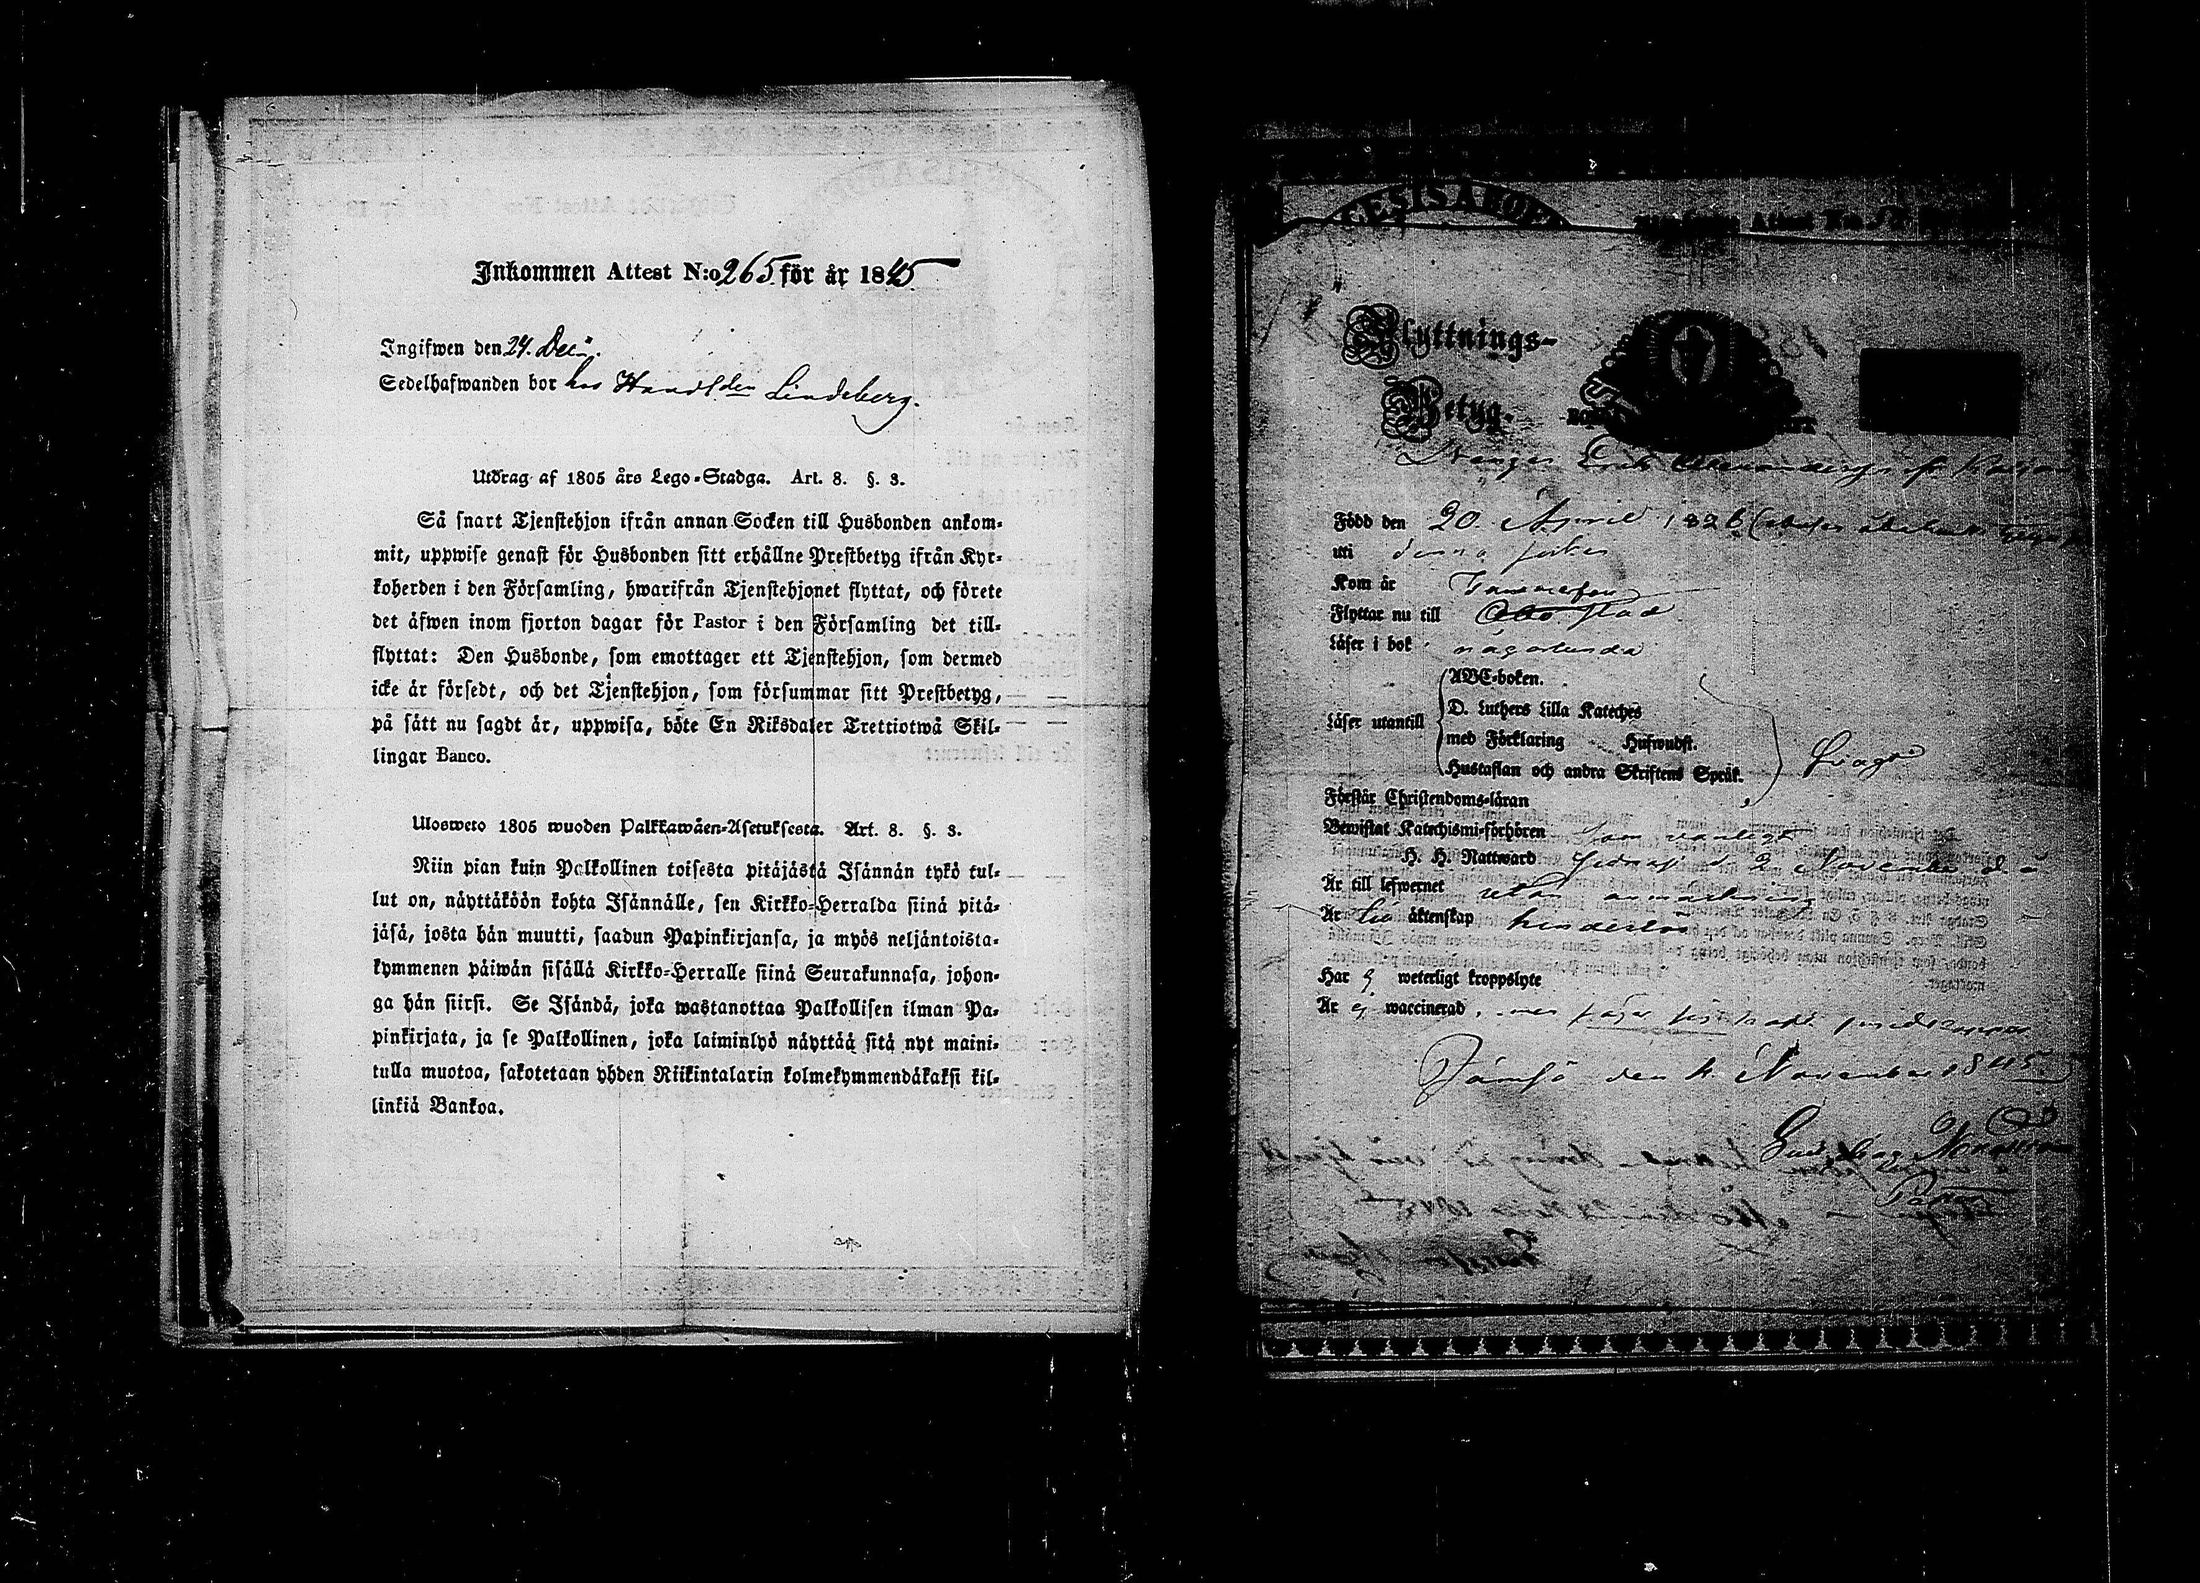 Inkommen Attest N:o 265. för år 1845.
Ingifwen den 24. Dec:r.
Sedelhafwanden bor hos Handl:den Lindeberg.
Utdrag af 1805 års Lego-Stadga. Art. 8. §. 3.
Så snart Tjenstehjon ifrån annan Socken till Husbonden ankom-
mit, uppwise genast för Husbonden sitt erhållne Prestbetyg ifrån Kyr-
koherden i den Församling, hwarifrån Tjenstehjonet flyttat, och förete
det äfwen inom fjorton dagar för Pastor i den Församling det till-
flyttat: Den Husbonde, som emottager ett Tjenstehjon, som dermed
icke är försedt, och det Tjenstehjon, som försummar sitt Prestbetyg,
på sätt nu sagdt är, uppwisa, böte En Riksdaler Trettiotwå Skil-
lingar Banco.
Ulosweto 1805 wuoden Palkkawäen-Asetuksesta. Art. 8. §. 3.
Niin pian kuin Palkollinen toisesta pitäjästä Isännän tykö tul-
lut on, näyttäköön kohta Isännälle, sen Kirkko-Herralda siinä pitä-
jäsä, josta hän muutti, saadun Papinkirjansa, ja myös neljäntoista-
kymmenen päiwän sisällä Kirkko-Herralle siinä Seurakunnasa, johon-
ga hän siirsi. Se Isändä, joka wastanottaa Palkollisen ilman Pa-
pinkirjata, ja se Palkollinen, joka laiminlyö näyttää sitä nyt maini-
tulla muotoa, sakotetaan yhden Riikintalarin kolmekymmendäkaksi kil-
linkiä Bankoa.
Attest N:o
Flyttnings-
Betyg.
Drengen Erik
Född den 20 April 1826
uti denna socken
Kom år
Flyttar nu till Åbo stad
Läser i bok någorlunda
Läser utantill
ABC-boken.
D. Luthers Lilla Kateches
med Förklaring Hufwudst.
Hustaflan och andra Skriftens Språk.
svagt
Förstår Christendoms-läran
Bewistat Katechismi-förhören som vanligt
H. H. Nattward sednast d. 2 November d. å
Är till lefwernet utan anmärkning
Är till äktenskap hinderlös
Har ej weterligt kroppslyte
Är ej waccinerad, men säger sig haft
Jämsä den 4. November 1845.
Pastor